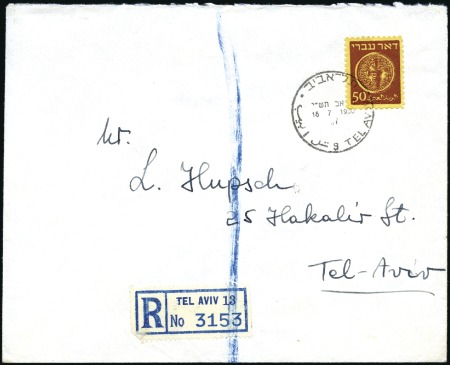 דאר עברי
50
תל-אביב
18 7 1950
TEL AVIV
Mr.
L. Hupsch
25 Hakalir St.
Tel-Aviv
R TEL AVIV 13
No 3153